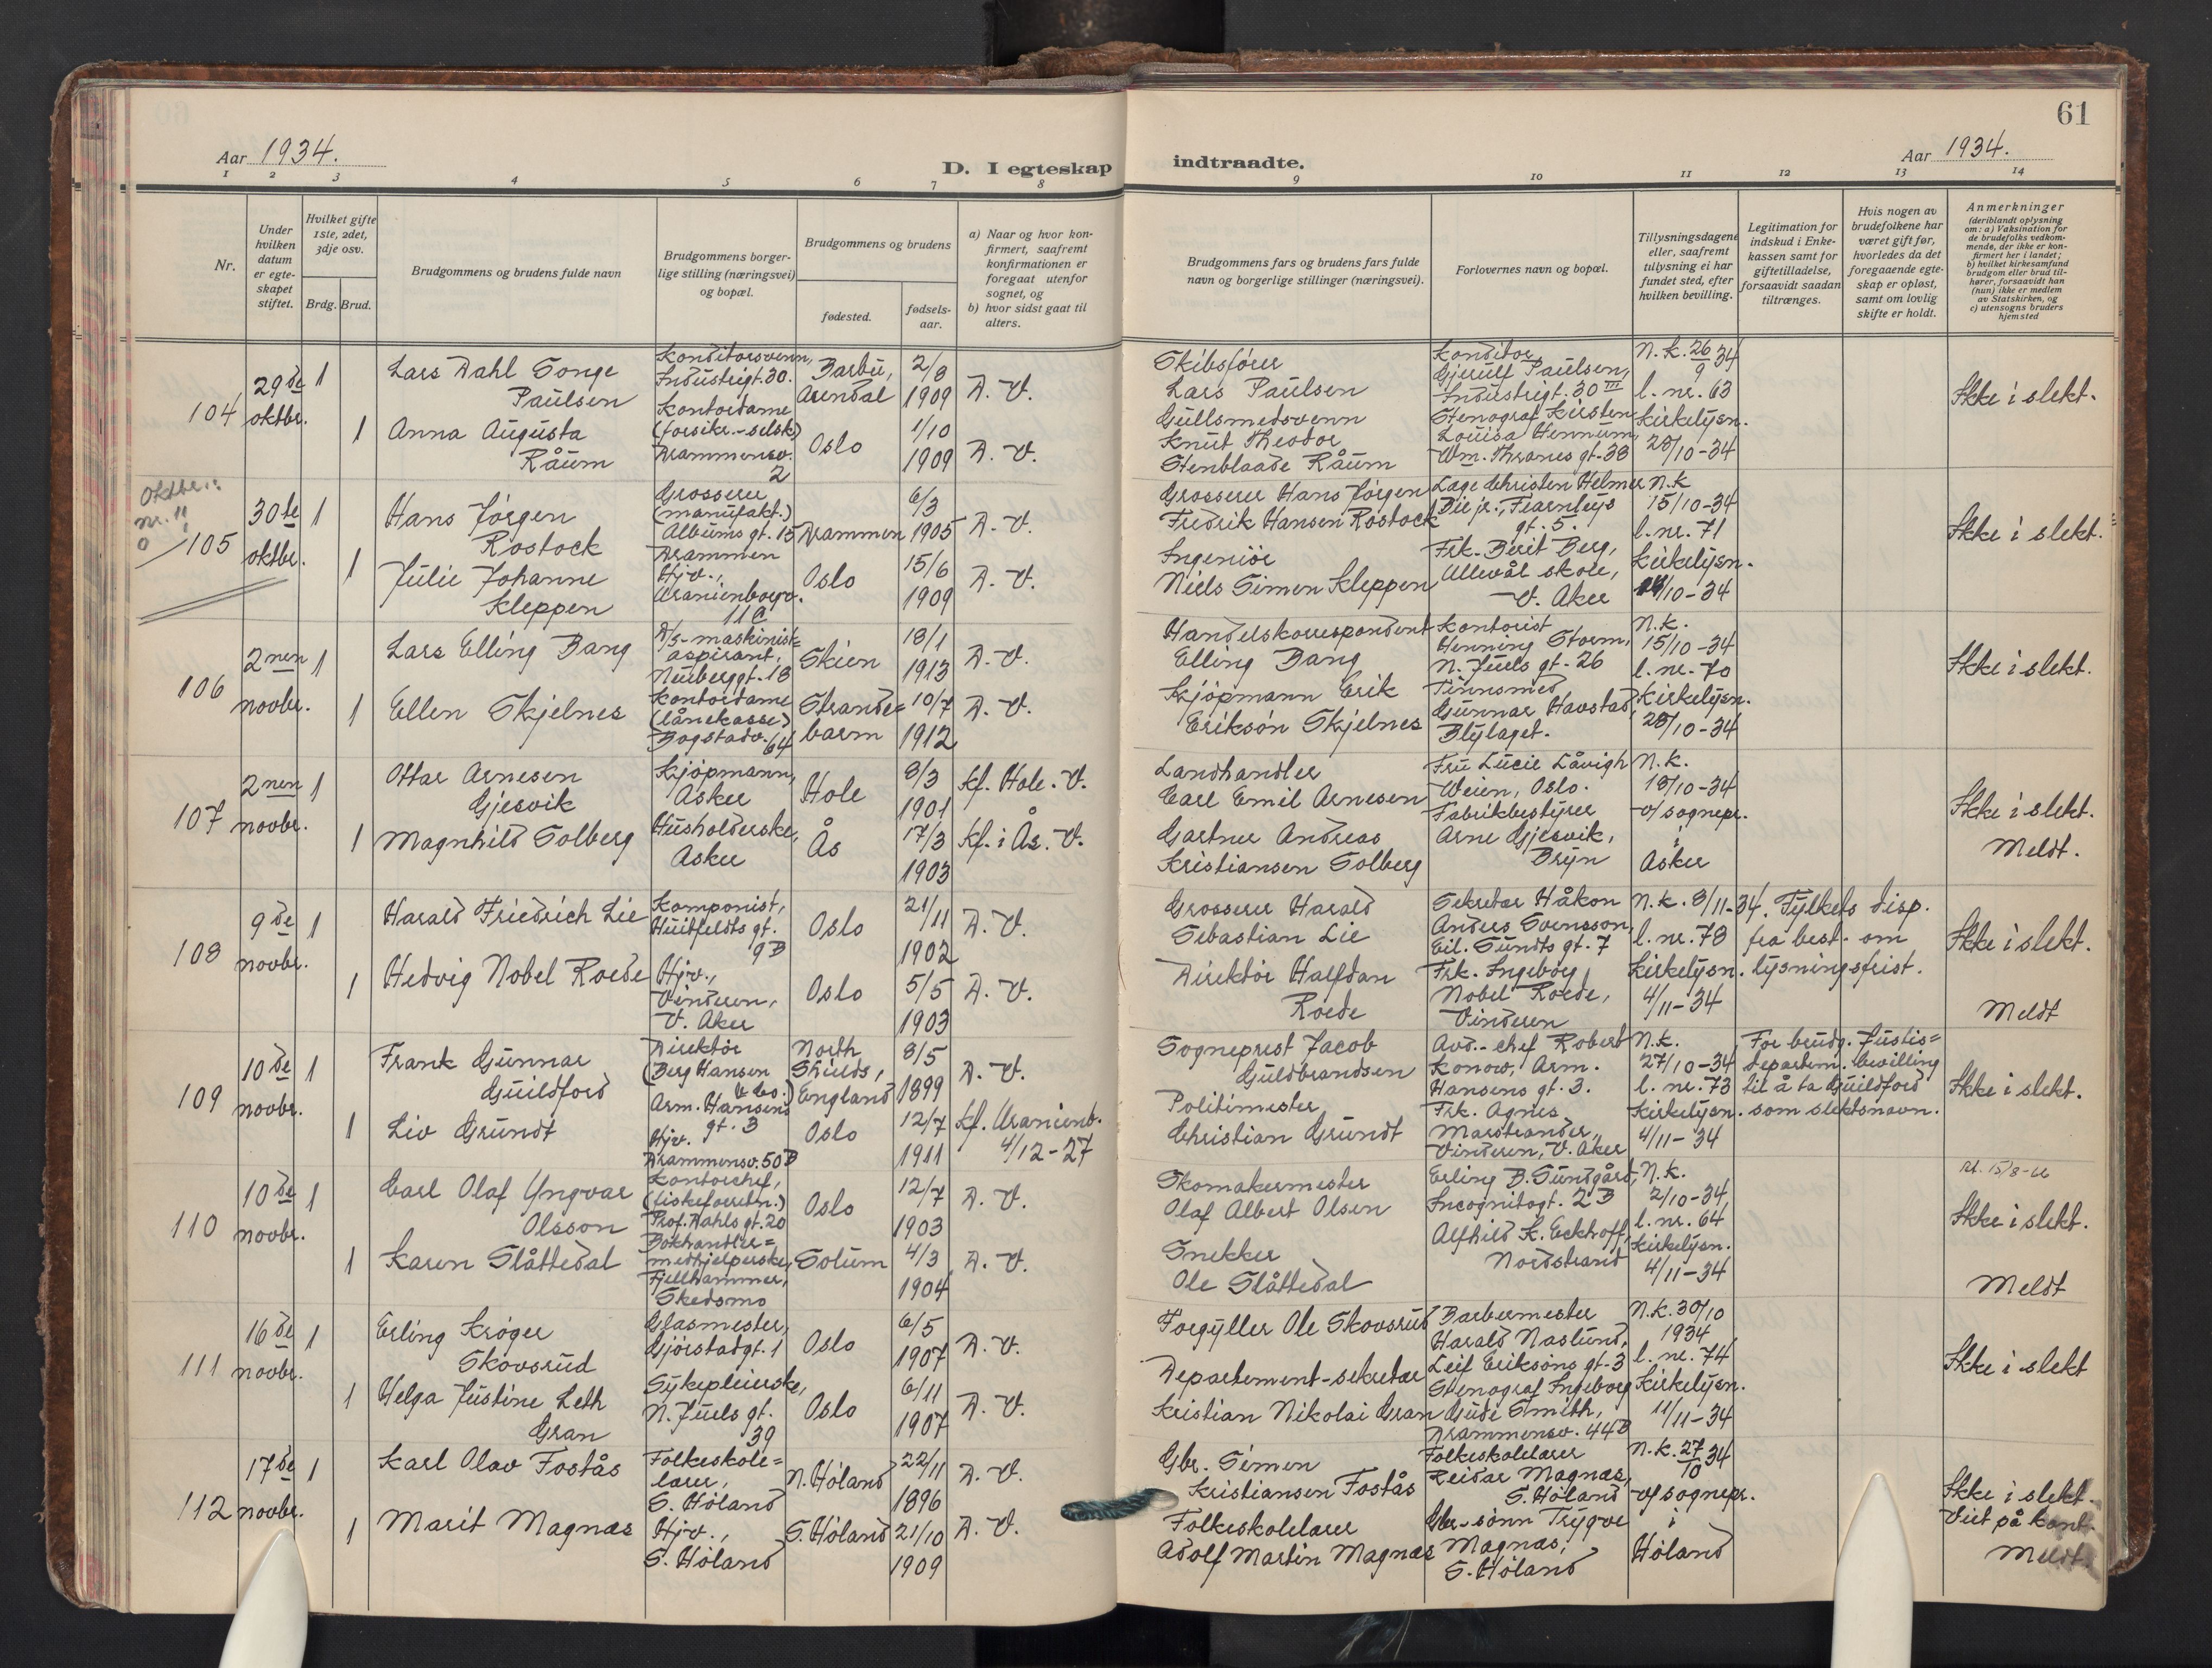 61
Aar 1934.
D. I egteskap
indtraadte.
Aar 1934.
1 2 3 4 5 6 7 8 9 10 11 12 13 14
Nr.
Under hvilken datum er egteskapet stiftet.
Hvilket gifte 1ste, 2det, 3dje osv.
Brdg. Brud.
Brudgommens og brudens fulde navn
Brudgommens borgerlige stilling (næringsvei) og bopæl.
Brudgommens og brudens
fødested.
fødsels-aar.
a) Naar og hvor konfirmert, saafremt konfirmationen er foregaat utenfor sognet, og
b) hvor sidst gaat til alters.
Brudgommens fars og brudens fars fulde navn og borgerlige stillinger (næringsvei).
Forlovernes navn og bopæl.
Tillysningsdagene eller, saafremt tillysning ei har fundet sted, efter hvilken bevilling.
Legitimation for indskud i Enkekassen samt for giftetilladelse, forsaavidt saadan tiltrænges.
Hvis nogen av brudefolkene har været gift før, hvorledes da det foregaaende egteskap er opløst, samt om lovlig skifte er holdt.
Anmerkninger
(deriblandt oplysning om: a) Vaksination for de brudefolks vedkommende, der ikke er konfirmert her i landet; b) hvilket kirkesamfund brudgom eller brud tilhører, forsaavidt han (hun) ikke er medlem av Statskirken, og c) utensogns bruders hjemsted
104
29de oktbr.
1
Lars Dahl Songe Paulsen
Konditorsvenn, Industrigt. 30.
Barbu, Arendal
2/8 1909
D. V.
Skibsfører Lars Paulsen
Konditor Gjerulf Paulsen, Industrigt. 30 III
N.k. 26/9 34
l. nr. 63
Kirkelysn. 28/10-34
Ikke i slekt.
1
Anna Augusta Råum
Kontordame (forsikr.-selsk) Drammensv. 2
Oslo
1/10 1909
D. V.
Gullsmedsvenn Knut Theodor Stenblaade Råum
Stenograf Kirsten Louisa Hennum, Wm. Thranes gt. 38
Oktbr.:
nr. 11
0
105
30te oktbr.
1
Hans Jørgen Rostock
Grosserer (manufakt.) Albums gt. 15 Drammen
Drammen
6/3 1905
D. V.
Grosserer Hans Jørgen Fredrik Hansen Rostock
Lage Christen Helmer Die jr., Fearnleys gt. 5.
N.k 15/10-34
l. nr. 71
Kirkelysn.
/10-34
Ikke i slekt.
1
Julie Johanne Kleppen
Hjv., Uranienborgv. 11 C
Oslo
15/6 1909
D. V.
Ingeniør Niels Simen Kleppen
Frk. Berit Berg, Ullevål skole, V. Aker
106
2nen novbr.
1
Lars Elling Bang
D/s-maskinist-aspirant, Neuberggt. 18
Skien
18/1 1913
D. V.
Handelskorrespondent Elling Bang
Kontorist Henning Storm, N. Juels gt. 26
N.k. 15/10-34
l. nr. 70
Kirkelysn. 28/10-34
Ikke i slekt.
1
Ellen Skjelnes
Kontordame (lånekasse) Bogstadv. 64
Strandebarm
10/7 1912
D. V.
Kjöpmann Erik Eriksön Skjelnes
Tinnsmed Gunnar Havstad, Blylaget.
107
2nen novbr.
1
Ottar Arnesen Gjesvik
Kjöpmann, Asker
Hole
8/3 1901
Kf. Hole. V.
Landhandler Carl Emil Arnesen
Fru Lucie Låvigh Weien, Oslo.
N.k. 18/10-34
v/ sognepr. i Asker
Ikke i slekt.
Meldt.
1
Magnhild Solberg
Husholderske, Asker
Ås
17/3 1903
Kf. i Ås. V.
Gartner Andreas Kristiansen Solberg
Fabrikbestyrer Arne Gjesvik, Bryn
108
9de novbr.
1
Harald Friedrich Lie
Komponist, Huitfeldts gt. 9 B
Oslo
21/11 1902
D. V.
Grosserer Harald Sebastian Lie
Sekretær Håkon Anders Svensson, Eil. Sundts gt. 7
N.k. 8/11-34.
l. nr. 78
Kirkelysn. 4/11-34
Fylkets disp. fra best. om lysningsfrist.
Ikke i slekt.
Meldt
1
Hedvig Nobel Roede
Hjv., Vinderen, V. Aker
Oslo
5/5 1903
D. V.
Direktör Halfdan Roede
Frk. Ingeborg Nobel Roede, Vinderen
109
10de novbr.
1
Frank Gunnar Guildford
Direktör (Berg Hansen & Co.) Arm. Hansens gt. 3
North Shields, England
8/5 1899
D. V.
Sogneprest Jacob Guldbrandsen
Avd.-chef Robert Konow, Arm. Hansens gt. 3.
N.k. 27/10-34
l. nr. 73
Kirkelysn. 4/11-34
For brudg. Justis-departem. bevilling til å ta Guildford som slektsnavn.
Ikke i slekt.
1
Liv Grundt
Hjv. Drammensv. 50 B
Oslo
12/7 1911
Kf. Uranienb. 4/12-27
Politimester Christian Grundt
Frk. Agnes Marstrander, Vinderen, V. Aker
110
10de novbr.
1
Carl Olaf Yngvar Olsson
Kontorchef, (fiskeforretn.) Prof. Dahls gt. 20
Oslo
12/7 1903
D. V.
Skomakermester Olaf Albert Olsen
Erling B. Sundgård, Incognitogt. 2 B
N.k. 2/10-34,
l. nr. 64
Kirkelysn. 4/11-34
Ikke i slekt.
Meldt
1
Karen Slåttedal
Bokhandler-medhjelperske, Fjellhammer, Skedsmo
Solum
4/3 1904
D. V.
Snekker Ole Slåttedal
Alfhild K. Eckhoff, Nordstrand
111
16de novbr.
1
Erling Kröger Skovsrud
Glasmester, Gjörstadgt. 1
Oslo
6/5 1907
D. V.
Forgyller Ole Skovsrud
Barbermester Harald Naslund, Leif Eriksöns gt. 3
N.k. 30/10 1934
l. nr. 74
Kirkelysn. 11/11-34
Ikke i slekt
1
Helga Justine Leth Gran
Sykepleierske, N. Juels gt. 39
Oslo
6/11 1907
D. V.
Departement-sekretær Kristian Nikolai Gran
Stenograf Ingeborg Gude Smith, Drammensv. 44 B
112
17de novbr.
1
Karl Olav Fostås
Folkeskole-lærer, S. Höland
N. Höland
22/11 1896
D. V.
Gbr. Simen Kristiansen Fostås
Folkeskolelærer Reidar Magnæs, S. Höland
N.k. 27/10 34
v/ sognepr. i Höland
Ikke i slekt.
Viet på kont.
Meldt.
1
Marit Magnæs
Hjv., S. Höland
S. Höland
21/10 1909
D. V.
Folkeskolelærer Adolf Martin Magnæs
Gbr.-sönn Trygve Magnæs, S. Höland